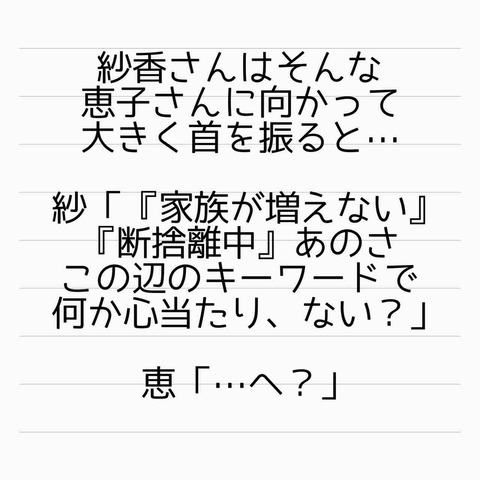 紗香さんはそんな
恵子さんに向かって
大きく首を振ると…
紗「『家族が増えない』
『断捨離中』あのさ
この辺のキーワードで
何か心当たり、ない？」
恵「…へ？」